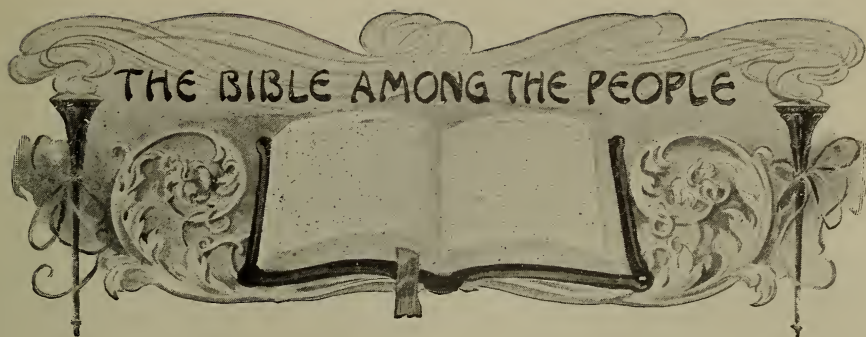 THE BIBLE AMONG THE PEOPLE